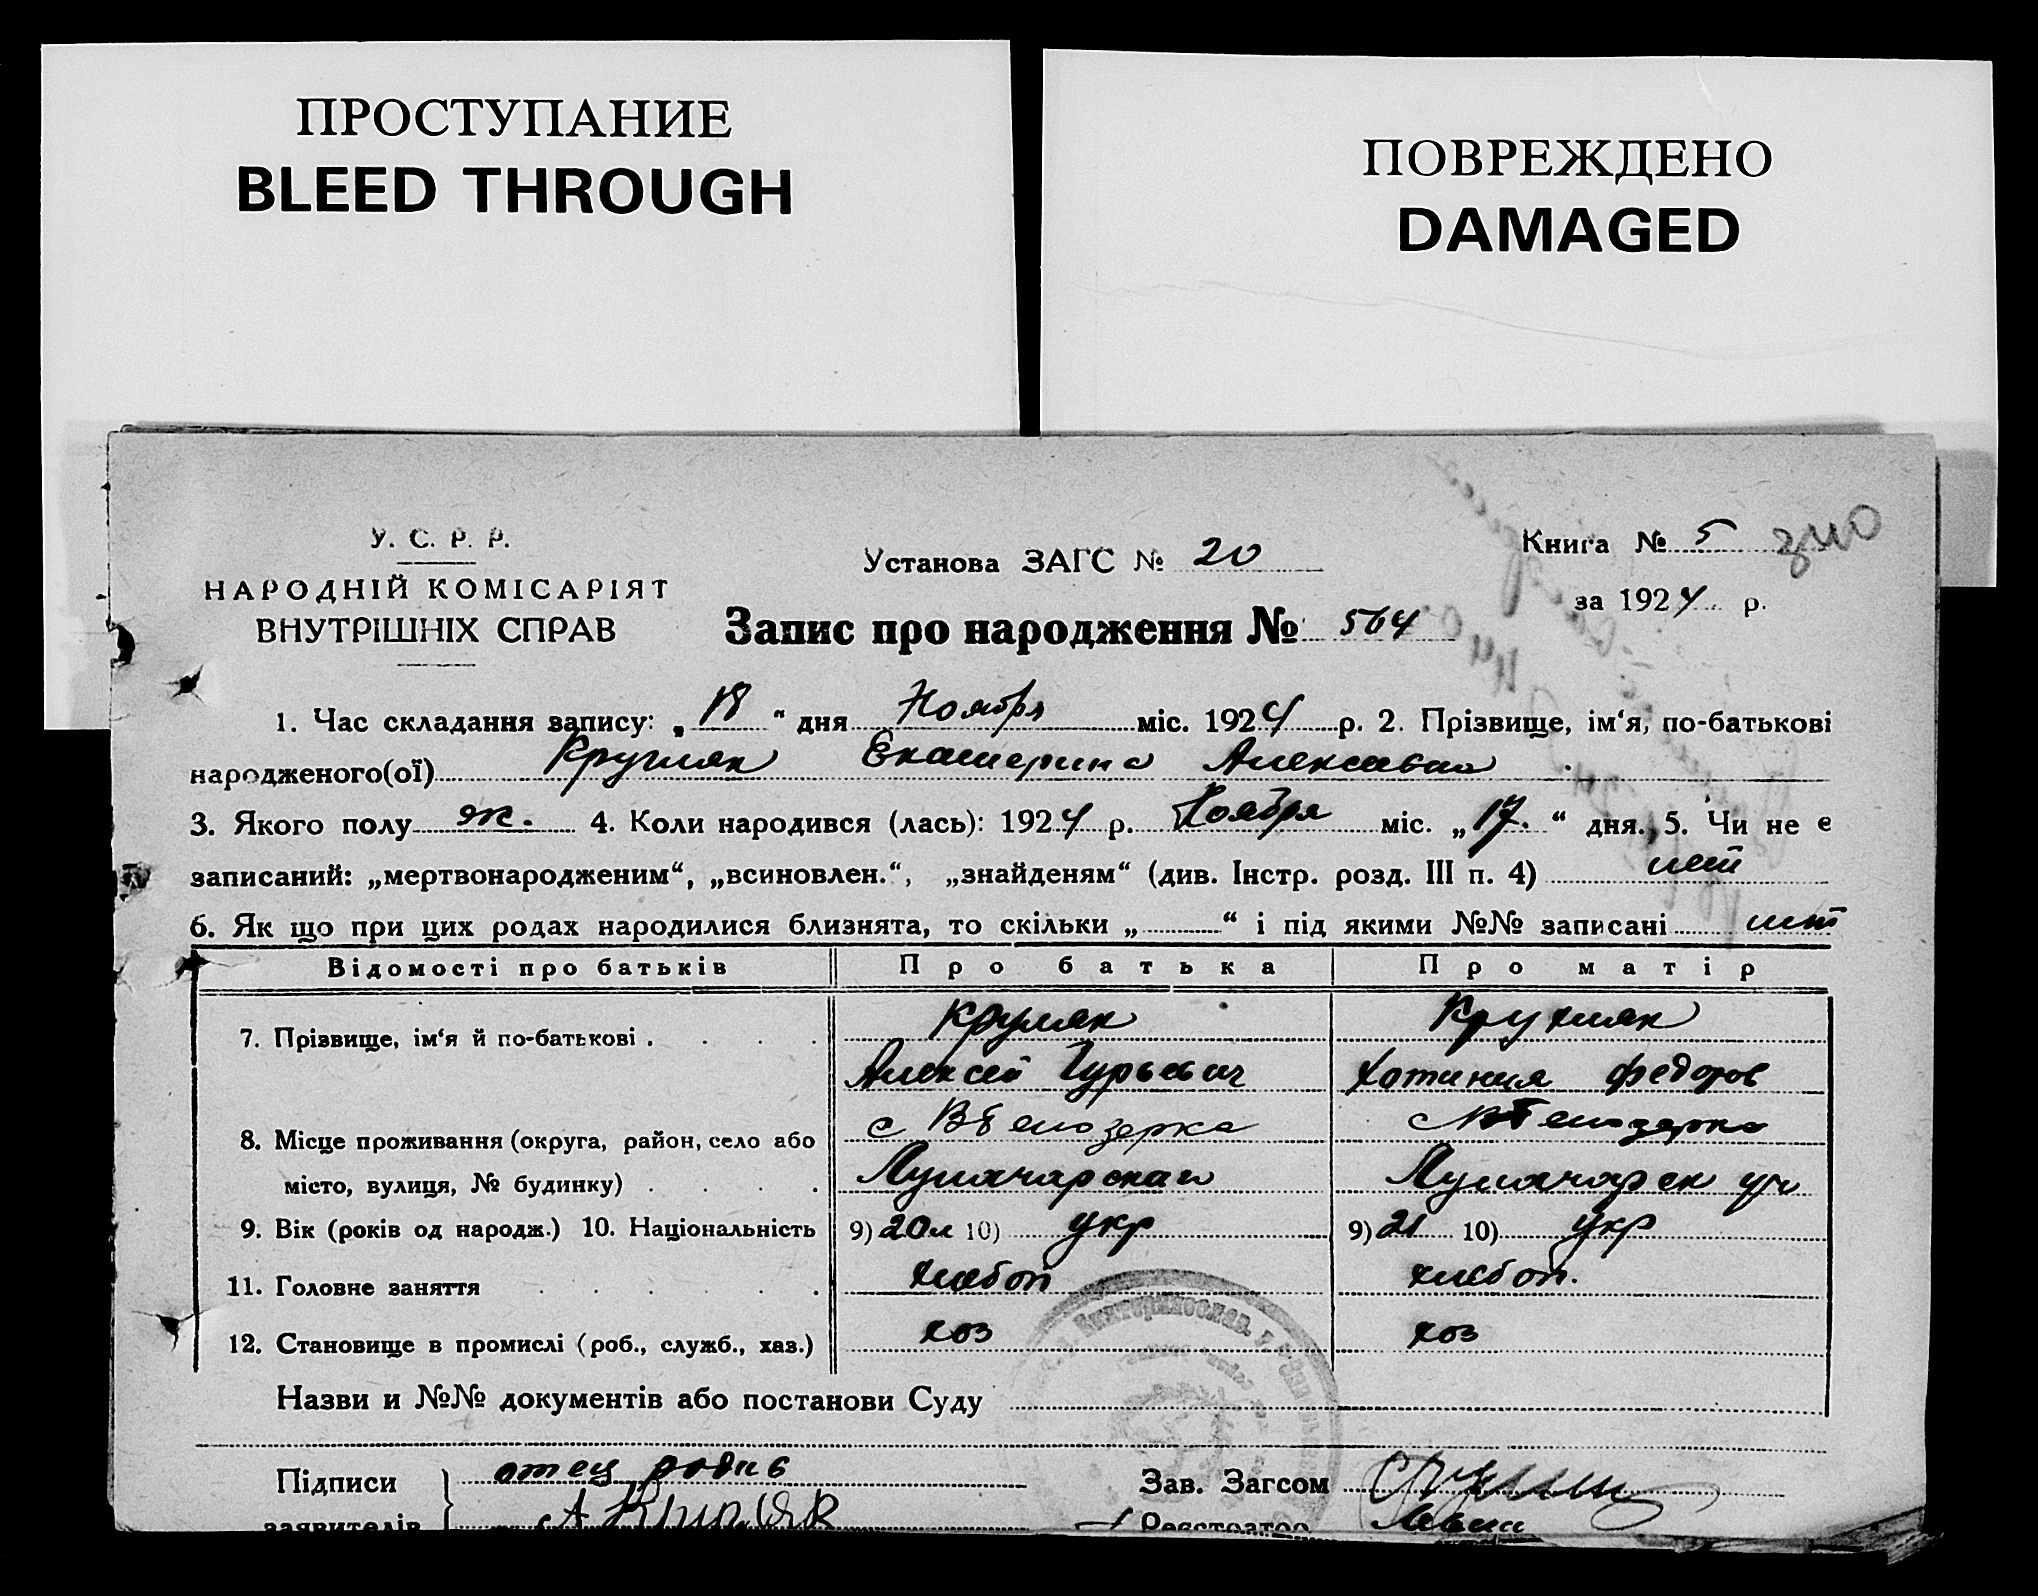 ПРОСТУПАНИЕ
BLEED THROUGH
ПОВРЕЖДЕНО
DAMAGED
У. С. Р. Р.
НАРОДНІЙ КОМІСАРІЯТ
ВНУТРІШНІХ СПРАВ
Установа ЗАГС № 20
Книга № 5
за 1924 р.
Запис про народження № 564
1. Час складання запису: „ 18 “ дня Ноября міс. 1924 р. 2. Прізвище, ім‘я, по-батькові
народженого(ої) Екатерина
3. Якого полу ж. 4. Коли народився (лась): 1924 р. Ноября міс. „ 17. “ дня. 5. Чи не є
записаний: „мертвонародженим“, „всиновлен.“, „знайденям“ (див. Інстр. розд. III п. 4) нет
6. Як що при цих родах народилися близнята, то скільки „ “ і під якими №№ записані нет
Відомості про батьків Про батька Про матір
7. Прізвище, ім‘я й по-батькові .
Алексей Гурьевич Федоров
8. Місце проживання (округа, район, село або с ВБелозерка
місто, вулиця, № будинку) .
9. Вік (років од народж.) 10. Національність 9) 20л 10) укр 9) 21 10) укр
11. Головне заняття хлебоп хлебоп.
12. Становище в промислі (роб., служб., хаз.) хоз хоз
Назви и №№ документів або постанови Суду
Підписи отец Зав. Загсом
заявителів Реєстратор